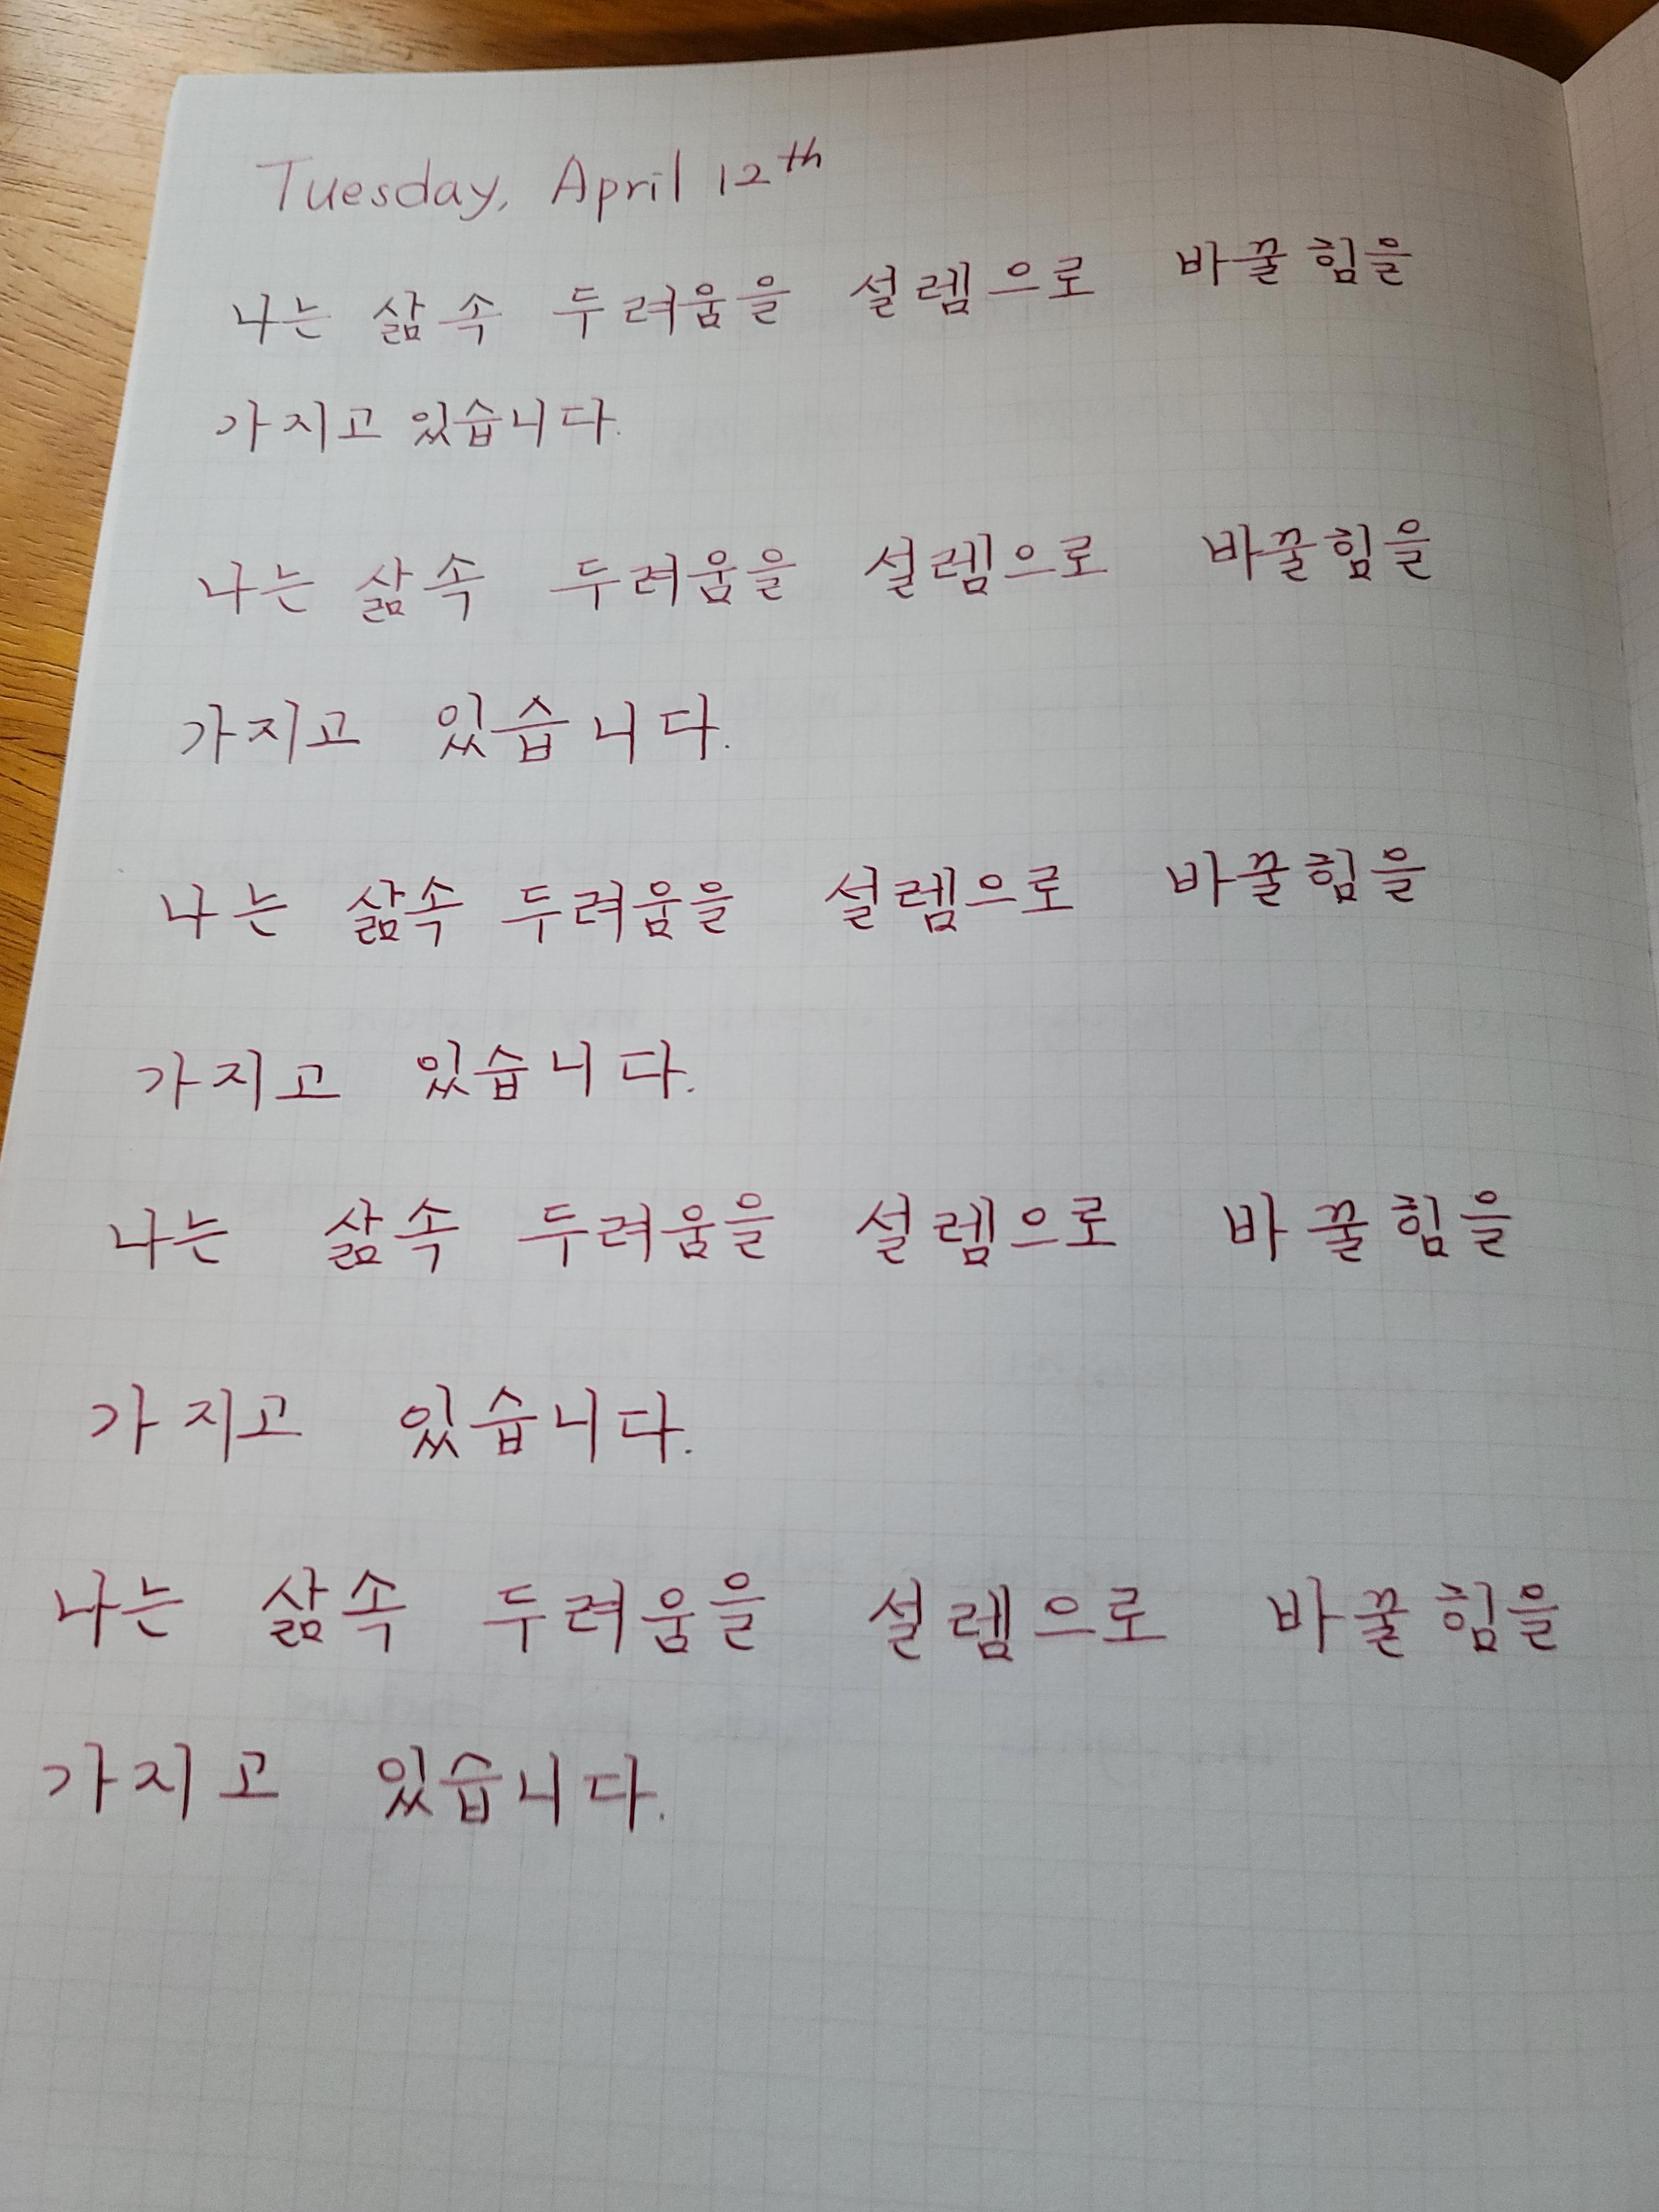 Tuesday, April 12th
나는 삶속 두려움을 설렘으로 바꿀힘을
가지고 있습니다.
나는 삶속 두려움을 설렘으로 바꿀힘을
가지고 있습니다.
나는 삶속 두려움을 설렘으로 바꿀힘을
가지고 있습니다.
나는 삶속 두려움을 설렘으로 바꿀힘을
가지고 있습니다.
나는 삶속 두려움을 설렘으로 바꿀힘을
가지고 있습니다.